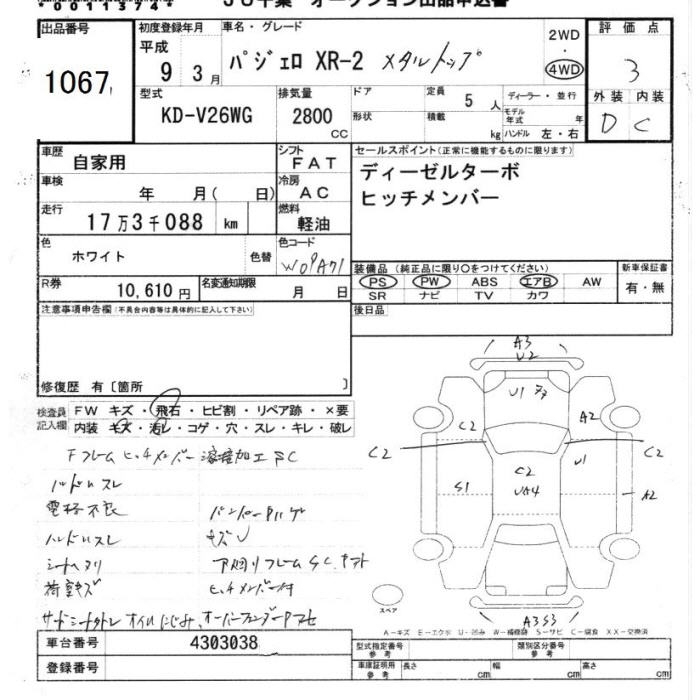 00113744
JU千葉 オークション出品申込書
出品番号
1067
初度登録年月
平成
9 3 月
車名・グレード
パジェロ XR-2 メタルトップ
2WD
・
4WD
評価点
3
外装 内装
D C
型式
KD-V26WG
排気量
2800
CC
ドア
形状
定員
5 人
積載
kg
ディーラー・並行
モデル
年式 年
ハンドル 左・右
車歴
自家用
シフト
FAT
車検
年 月( 日)
冷房
AC
走行
17万3千088 km
燃料
軽油
色
ホワイト
色替
色コード
W09A71
R券
10,610 円
名変通知期限
月 日
セールスポイント(正常に機能するものに限ります)
ディーゼルターボ
ヒッチメンバー
装備品 (純正品に限り○をつけてください)
PS PW ABS エアB AW
SR ナビ TV カワ
新車保証書
有・無
後日品
注意事項申告欄(不具合内容等は具体的に記入して下さい)
修復歴 有〔箇所 〕
検査員
記入欄
FW キズ・飛石・ヒビ割・リペア跡・×要
内装 キズ・汚レ・コゲ・穴・スレ・キレ・破レ
Fフレーム ヒッチメンバー溶接加工 S C
電格不良
ハンドルスレ
シートヘタリ
荷室キズ
バンパーPハゲ
キズU
下廻りフレームSC.
ヒッチメンバー付
オイルにじみ、オーバーフェンダー
A3
U2
U1
A2
C2
C2
C2
C2
U1
S1
UA4
A2
A3S3
スペア
A-キズ E-エクボ U-凹み W-補修跡 S-サビ C-腐食 XX-交換済
車台番号
4303038
登録番号
型式指定番号
参考
類別区分番号
参考
車庫証明用
参考
長さ cm
幅 cm
高さ cm